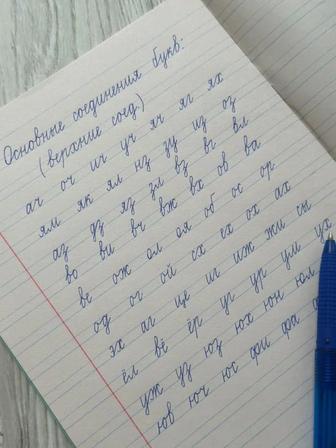 Основные соединения букв:
(верхние соед.)
ач оч ич уч яч яг ях
ям як ял нз зу из оз
аз дз яз зл вз вг вл
во ви вч вж вх ов ва
ве ож ол оя об ос ор
од ог ой сх ех ох ах
эх аг це иг иж жи сы
ёл вё ёр ур ум ух
уж уз юз юх юн юл
юв юч юс фи фа